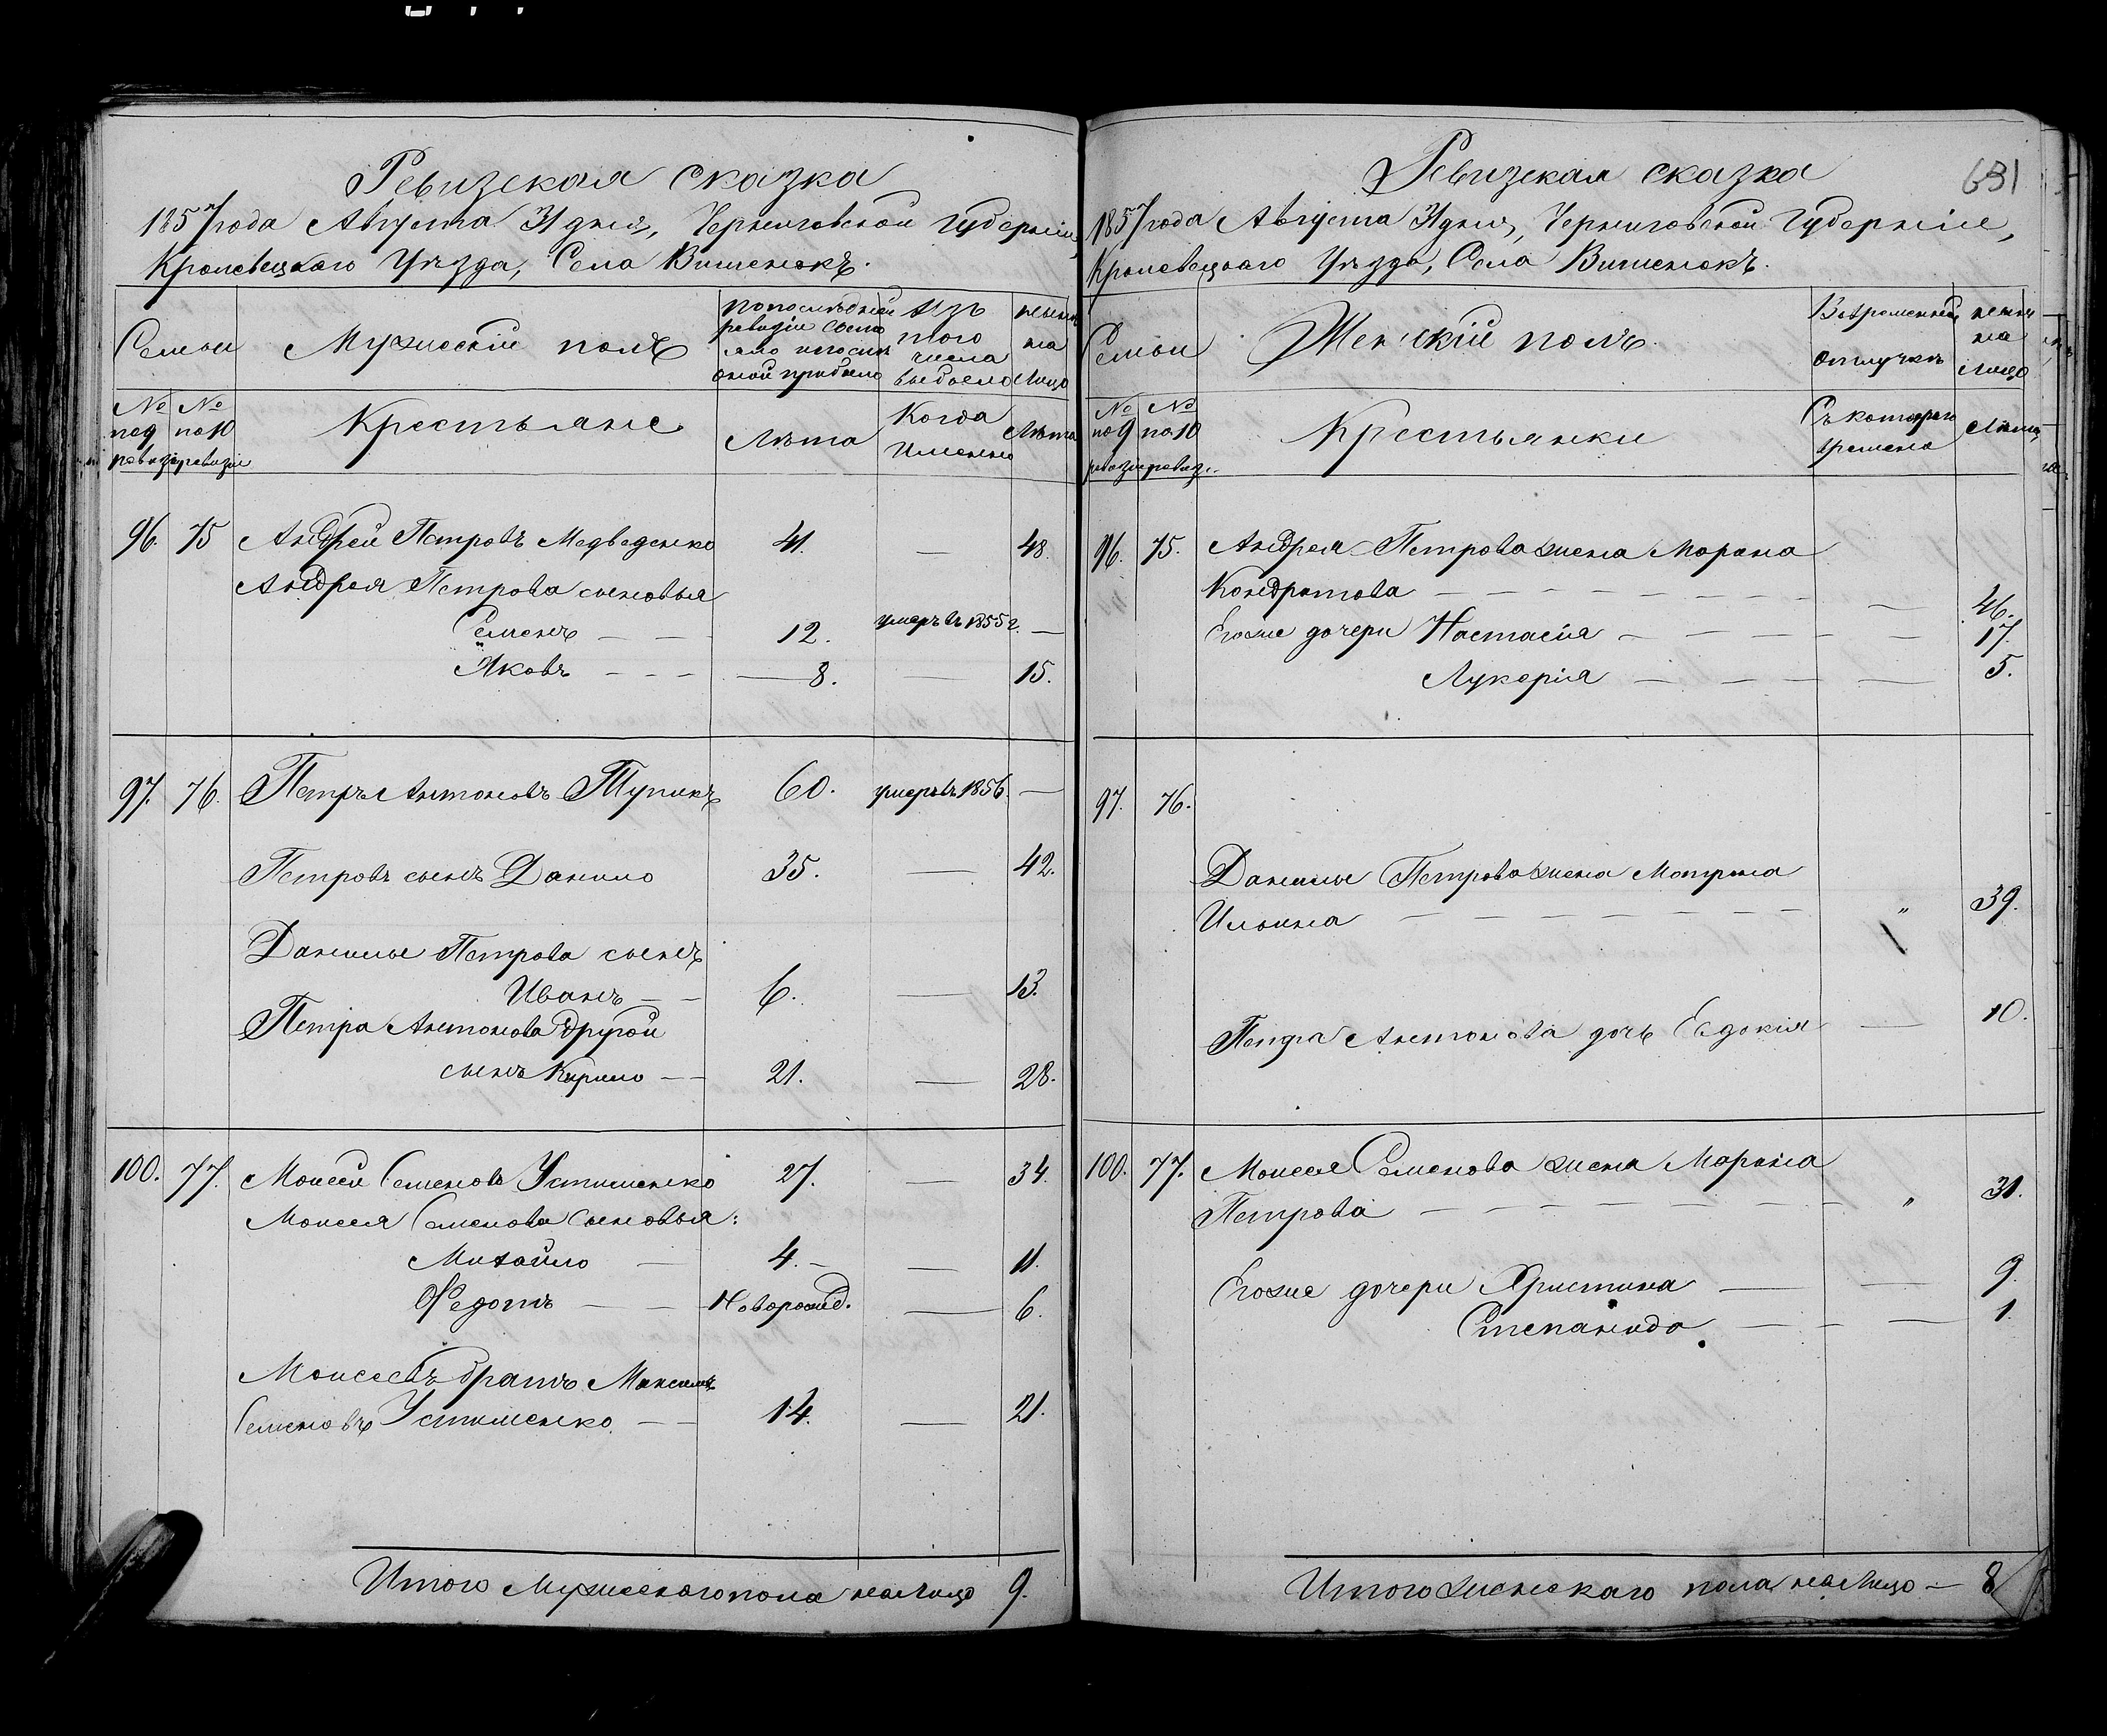 Ревизская сказка
1857 года Августа 31 дня, Черниговской Губерніи,
Кролевецкаго Уѣзда, Села Вишенокъ.
Семьи
Мужескій полъ
По послѣдней ревизіи состояло и послѣ оной прибыло
Изъ того числа выбыло
Нынѣ на лицо
№ по 9 ревизіи
№ по 10 ревизіи
Крестьяне
Лѣта
Когда Именно
Лѣта
96. 75 Андрей Петровъ Медведенко 41. — 48.
Андрея Петрова сыновья
Семенъ — — 12. умеръ въ 1855 г. —
Яковъ - - - — 8. — 15.
97. 76. Петръ Антоновъ Тупикъ 60. умеръ въ 1856. —
Петровъ сынъ Данило 35. — 42.
Данилы Петрова сынъ
Иванъ — — 6. — 13.
Петра Антонова другой
сынъ Кирило — — 21. — 28.
100. 77. Моисей Семеновъ Устименко 27. — 34.
Моисея Семенова сыновья:
Михайло — 4. — — 11.
Федотъ — — Новорожд. — 6.
Моисеевъ братъ Максимъ
Семеновъ Устименко — — 14. — 21.
Итого Мужескаго пола на лицо 9.
Ревизская сказка
631
1857 года Августа 31 дня, Черниговской Губерніи,
Кролевецкаго Уѣзда, Села Вишенокъ.
Семьи
Женскій полъ.
Въ временной отлучкѣ
Нынѣ на лицо
№ по 9 ревизіи
№ по 10 ревиз.
Крестьянки
Съ котораго времени
Лѣта
96. 75. Андрея Петрова жена Марина
Кондратова — — — — — — — — 46.
Его же дочери Настасія — — — — — 17.
Лукерія — — — — — 5.
97. 76.
Данилы Петрова жена Матрина
Ильина — — — — — — — " 39.
Петра Антонова дочь Евдокія — 10.
100. 77. Моисея Семенова жена Марина
Петрова — — — — — — — " 31.
Его же дочери Христина — — 9.
Степанида — — — 1.
Итого женскаго пола на лицо — 8